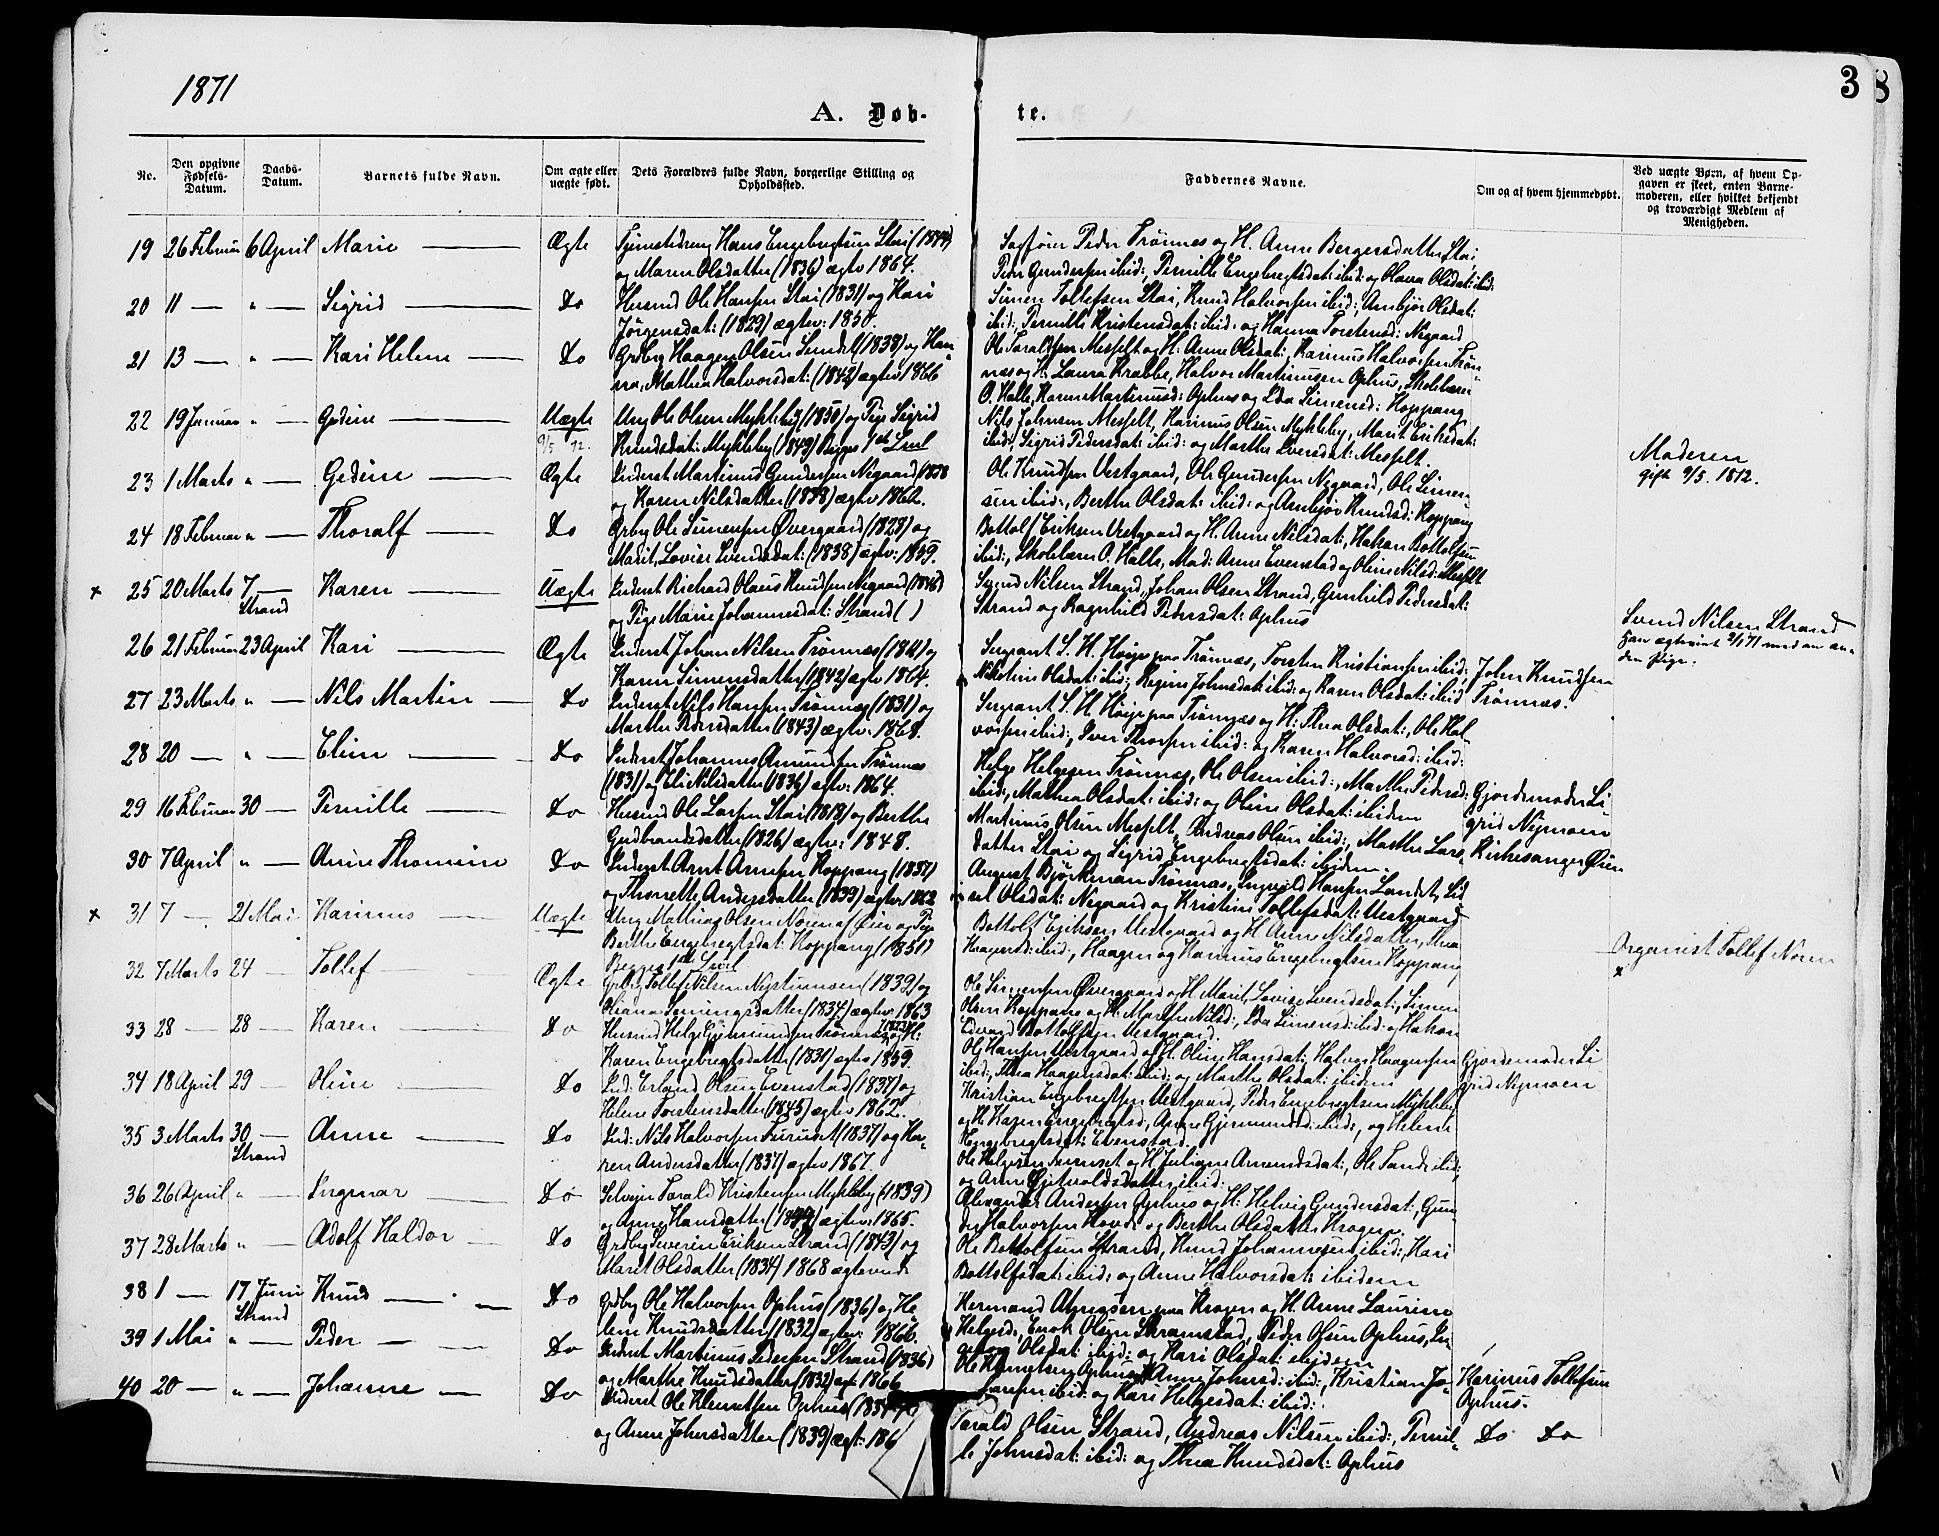 1871
3
8
A. Døb-
te.
No.
Den opgivne Fødsels-Datum.
Daabs-Datum.
Barnets fulde Navn.
Om ægte eller uægte født.
Dets Forældres fulde Navn, borgerlige Stilling og Opholdsted.
Faddernes Navne.
Om og af hvem hjemmedøbt.
Ved uægte Børn, af hvem Opgaven er skeet, enten Barnemoderen, eller hvilket bekjendt og troværdigt Medlem af Menigheden.
19 26 Februar 6 April Marie Ægte Tjenstedreng Hans Engebregtsen Stai (1844)
og Maren Olsdatter (1836) ægtev 1864.
Sagfører Peder Trønnes og H. Anne Bergersdatter Stai
Peder Gundersen ibid:, Pernille Engebregtsdat: ibid: og Olava Olsdat: ibid:
20 11 — " — Sigrid Do Husmd Ole Hansen Stai (1831) og Kari
Jørgensdat: (1829) ægtev: 1850.
Simen Tollefsen Stai, Knud Halvorsen ibid:, Annbjør Olsdat:
ibid:, Pernille Kristensdat: ibid: og Hanna Torstensd: Negaard
21 13 — " — Kari Helene Do Grdbr Haagen Olsen Sundet (1838) og Han-
na Mathea Halvorsdat: (1842) ægtev 1866
Ole Taraldsen Messelt og H: Anne Olsdat:, Karinus Halvorsen Trøn-
nes og H. Laura Krabbe, Halvor Martinusen Ophus, Skolelærer
O. Halle, Karen Martinusd: Ophus og Eda Simensd: Koppang
22 19 Januar " — Gedine Uægte Ung Ole Olsen Myklebÿ (1850) og Pige Sigrid
Knudsdat: Mykleby (1849) Begges 1ste Leiel
9/5 72.
Nils Johnsen Messelt, Karinus Olsen Mykleby, Marit Eriksdat:
ibid:, Sigrid Pedersdat: ibid: og Marthe Iversdat: Messelt.
Moderen
gift 9/5. 1872.
23 1 Marts " — Gedine Ægte Inderst Martinus Gundersen Negaard (1838
og Karen Nilsdatter (1838) ægtev 1862.
Ole Knudsen Vestgaard, Ole Gundersen Negaard, Ole Simen-
sen ibid:, Berthe Olsdat: ibid: og Annbjør Knudsd: Koppang
24 18 Februar " — Thoralf Do Grdbr Ole Simensen Øvergaard (1828) og
Marit Lovise Svendsdat: (1838) ægtev: 1859.
Bottolf Eriksen Vestgaard og H. Anne Nilsdat:, Hakon Bottolfsen
ibid:, Skolelærer O. Halle, Mad: Anne Evenstad og Oline Nilsd: Messelt
x 25 20 Marts 7 — Strand Karen Uægte Inderst Richard Olaus Knudsen Negaard (1846)
og Pige Marie Johannesdat: Strand ( )
Svend Nilsen Strand, Johan Olsen Strand, Gunhild Pedersdat:
Strand og Ragnhild Pedersdat: Ophus
Svend Nilsen Strand
26 21 Februar 23 April Kari Ægte Inderst Johan Nilsen Trønnes (1841) og
Karen Simensdatter (1842) ægtev 1864.
Sergeant S. H. Høije paa Trønnes, Torsten Kristiansen ibid:
Nikoline Olsdat: ibid:, Regine Johnsdat: ibid: og Karen Olsdat: ibid
John Knudsen
Trønnes.
27 23 Marts " — Nils Martin Do Inderst Nils Hansen Trønnes (1831) og
Marthe Pedersdatter (1843) ægtev: 1868.
Sergeant S. H. Høije paa Trønnes og H: Thea Olsdat:, Ole Hal-
vorsen ibid:, Iver Thorsen ibid: og Karen Halvorsd: ibid:
28 20 — " — Eline Do Inderst Johannes Amundsen Trønnes
(1831) og Eli Nilsdatter (1836) ægtev: 1864.
Helge Helgesen Trønnes, Ole Olsen ibid:, Marthe Pedersd:
ibid:, Mathea Olsdat: ibid: og Oline Olsdat: ibidem
29 16 Februar 30 — Pernille Do Husmd Ole Larsen Stai (1818) og Berthe
Gudbrandsdatter (1826) ægtev: 1848.
Martinus Olsen Messelt, Andreas Olsen ibid:, Marthe Lars-
datter Stai og Sigrid Engebregtsdat: ibidem.
Gjordemoder Si
grid Nymoen
30 7 April " — Anne Thomine Do Inderst Arnt Arnesen Koppang (1837)
og Thorette Andersdatter (1839) ægtev 1862
August Björkman Trønnes, Ingvald Hansen Landet, Sid
sel Olsdat: Negaard og Kristine Tollefsdat: Vestgaard
Kirkesanger
x 31 7 — 21 Mai Karinus Uægte Ung Mathias Olsen Noren af Øien og Pige
Berthe Engebregtsdat: Koppang (1851)
Begges 1ste Leiel
Bottolf Eriksen Vestgaard og H. Anne Nilsdatter, Thea
Haagensd: ibid:, Haagen og Karinus Engebregtsen Koppang
Organist Tollef Noren
x
32 7 Marts 24 Tollef Ægte Grdbr Tollef Nilsen Nystumoen (1839) og
Oliana Semingsdatter (1834) ægtev: 1863
Ole Simensen Øvergaard og H. Marit Lovise Svendsdat:, Simen
Olsen Koppang og H. Marthe Nilsd:, Eda Simensd: ibid: og Hakon
Edvard Bottolfsen Vestgaard.
33 28 — 28 — Karen Do Husmd Helge Gjermundsen Trønnes og H:
Karen Engebregtsdatter (1831) ægtev 1859.
Ole Hansen Vestgaard og H. Oline Hansdat:, Halvor Haagensen
ibid:, Thea Haagensdat: ibid: og Marthe Olsdat: ibidem
Gjordemoder Si
grid Nymoen
34 18 April 29 — Oline Do Ind: Erland Olsen Evenstad (1837) og
Helene Torstensdatter (1845) ægtev 1862.
Kristian Engebregtsen Vestgaard, Peder Engebregtsen Mykleby
og H. Karen Engebregtsd, Anne Gjermundsd: ibid:, og Helene
Engebregtsdat: Evenstad.
35 3 Marts 30 — Strand Anne Do Ind: Nils Halvorsen Furuset (1837) og Ka-
ren Andersdatter (1837) ægtev 1867.
Ole Helgesen Furuset og H. Juliane Amundsdat:, Ole Sande ibid:,
36 26 April " — Ingvar Do Selvejer Tarald Kristensen Mykleby (1839)
og Anne Hansdatter (1844) ægtev: 1865.
Alexander Andersen Ophus og H: Helvig Gundersdat:, Gun-
der Halvorsen Hovde og Berthe Olsdatter Krogen
37 28 Marts " — Adolf Haldor Do Grdbr Severin Eriksen Strand (1843) og
Marit Olsdatter (1834) 1868 ægteviede
Ole Bottolfsen Strand, Knud Johannesen ibid:, Kari
Bottolfsdat: ibid: og Anne Halvorsdat: ibidem
38 1 — 17 Juni Strand Knud Do Grdbr Ole Halvorsen Ophus (1836) og He
lene Knudsdatter (1832) ægtev: 1866.
Hermand paa Krogen og H. Anne Laurine
Helgesd:, Enok Olsen Skramstad, Peder Olsen Ophus, In-
geborg Olsdat: ibid: og Kari Olsdat: ibidem
39 1 Mai " — Peder Do Inderst Martinus Pedersen Strand (1836)
og Marthe Knudsdatter (1832) ægt. 1866
Ole Klemetsen Ophus og Anne Johnsd: ibid:, Kristian Jo-
hansen ibid: og Kari Helgesdat: ibid:
Karinus Tollefsen
Ophus.
40 20 — " — Johanne Do Inderst Ole Klemetsen Ophus (1834) og
og Anne Johnsdatter (1839) ægt: 186
Tarald Olsen Strand, Andreas Nilsen ibid:, Pernil-
le Johnsdat: ibid: og Thea Knudsdat: Ophus
Do Do